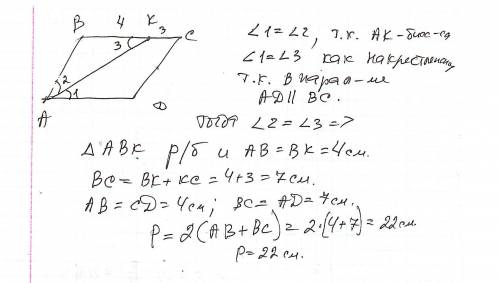 B 4 K 3 C
3
2
1
A D
∠1 = ∠2, т.к. AK - бис-са
∠1 = ∠3 как накрестлежащ
т.к. в парал-ме
AD || BC.
тогда ∠2 = ∠3 =>
△ ABK р/б и AB = BK = 4 см.
BC = BK + KC = 4 + 3 = 7 см.
AB = CD = 4 см; BC = AD = 7 см.
P = 2(AB + BC) = 2·(4+7) = 22 см
P = 22 см.